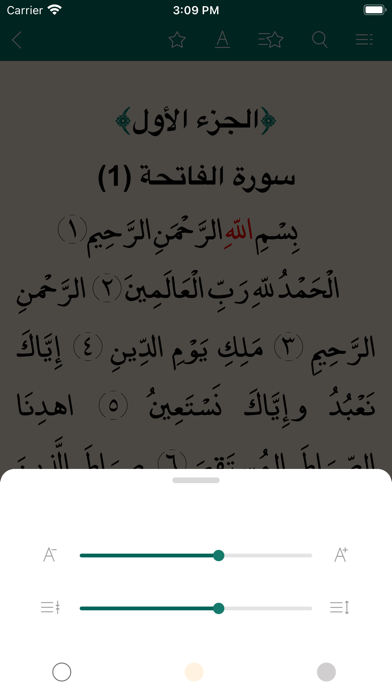 Carrier 3:09 PM
A
﴿الجزء الأول﴾
سورة الفاتحة (1)
بِسْمِ اللَّهِ الرَّحْمَنِ الرَّحِيمِ ١
الْحَمْدُ لِلَّهِ رَبِّ الْعَالَمِينَ ٢ الرَّحْمنِ
الرَّحِيمِ ٣ مَلِكِ يَوْمِ الدِّينِ ٤ إِيَّاكَ
نَعْبُدُ وإِيَّاكَ نَسْتَعِينُ ٥ اهدِنَا
الصِّرَاطَ المُستَقِيمَ ٦ صِرَاطَ الَّذِينَ
A- A+